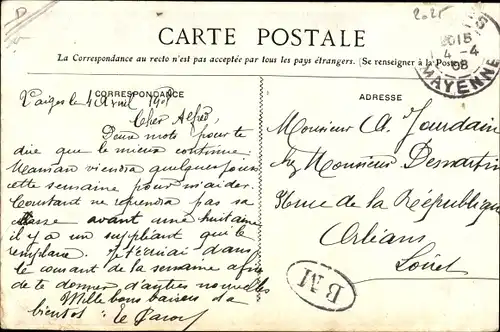 D
2021
CARTE POSTALE
La Correspondance au recto n'est pas acceptée par tous les pays étrangers. (Se renseigner à la Poste)
2015
4-4
08
MAYENNE
CORRESPONDANCE
Vaiges le 4 Avril 1908
Cher Alfred,
Deux mots pour te
dire que le mieux continue
Maman viendra quelques jours
cette semaine pour m'aider.
Constant ne reprendra pas sa
classe avant une huitaine
il y a un suppléant qui le
remplace. Je t'écrirai dans
le courant de la semaine afin
de te donner d'autres nouvelles
Mille bons baisers
bientôt
ADRESSE
Monsieur A. Jourdain
chez Monsieur Desmartin
Rue de la République
Orléans
Loiret
BM